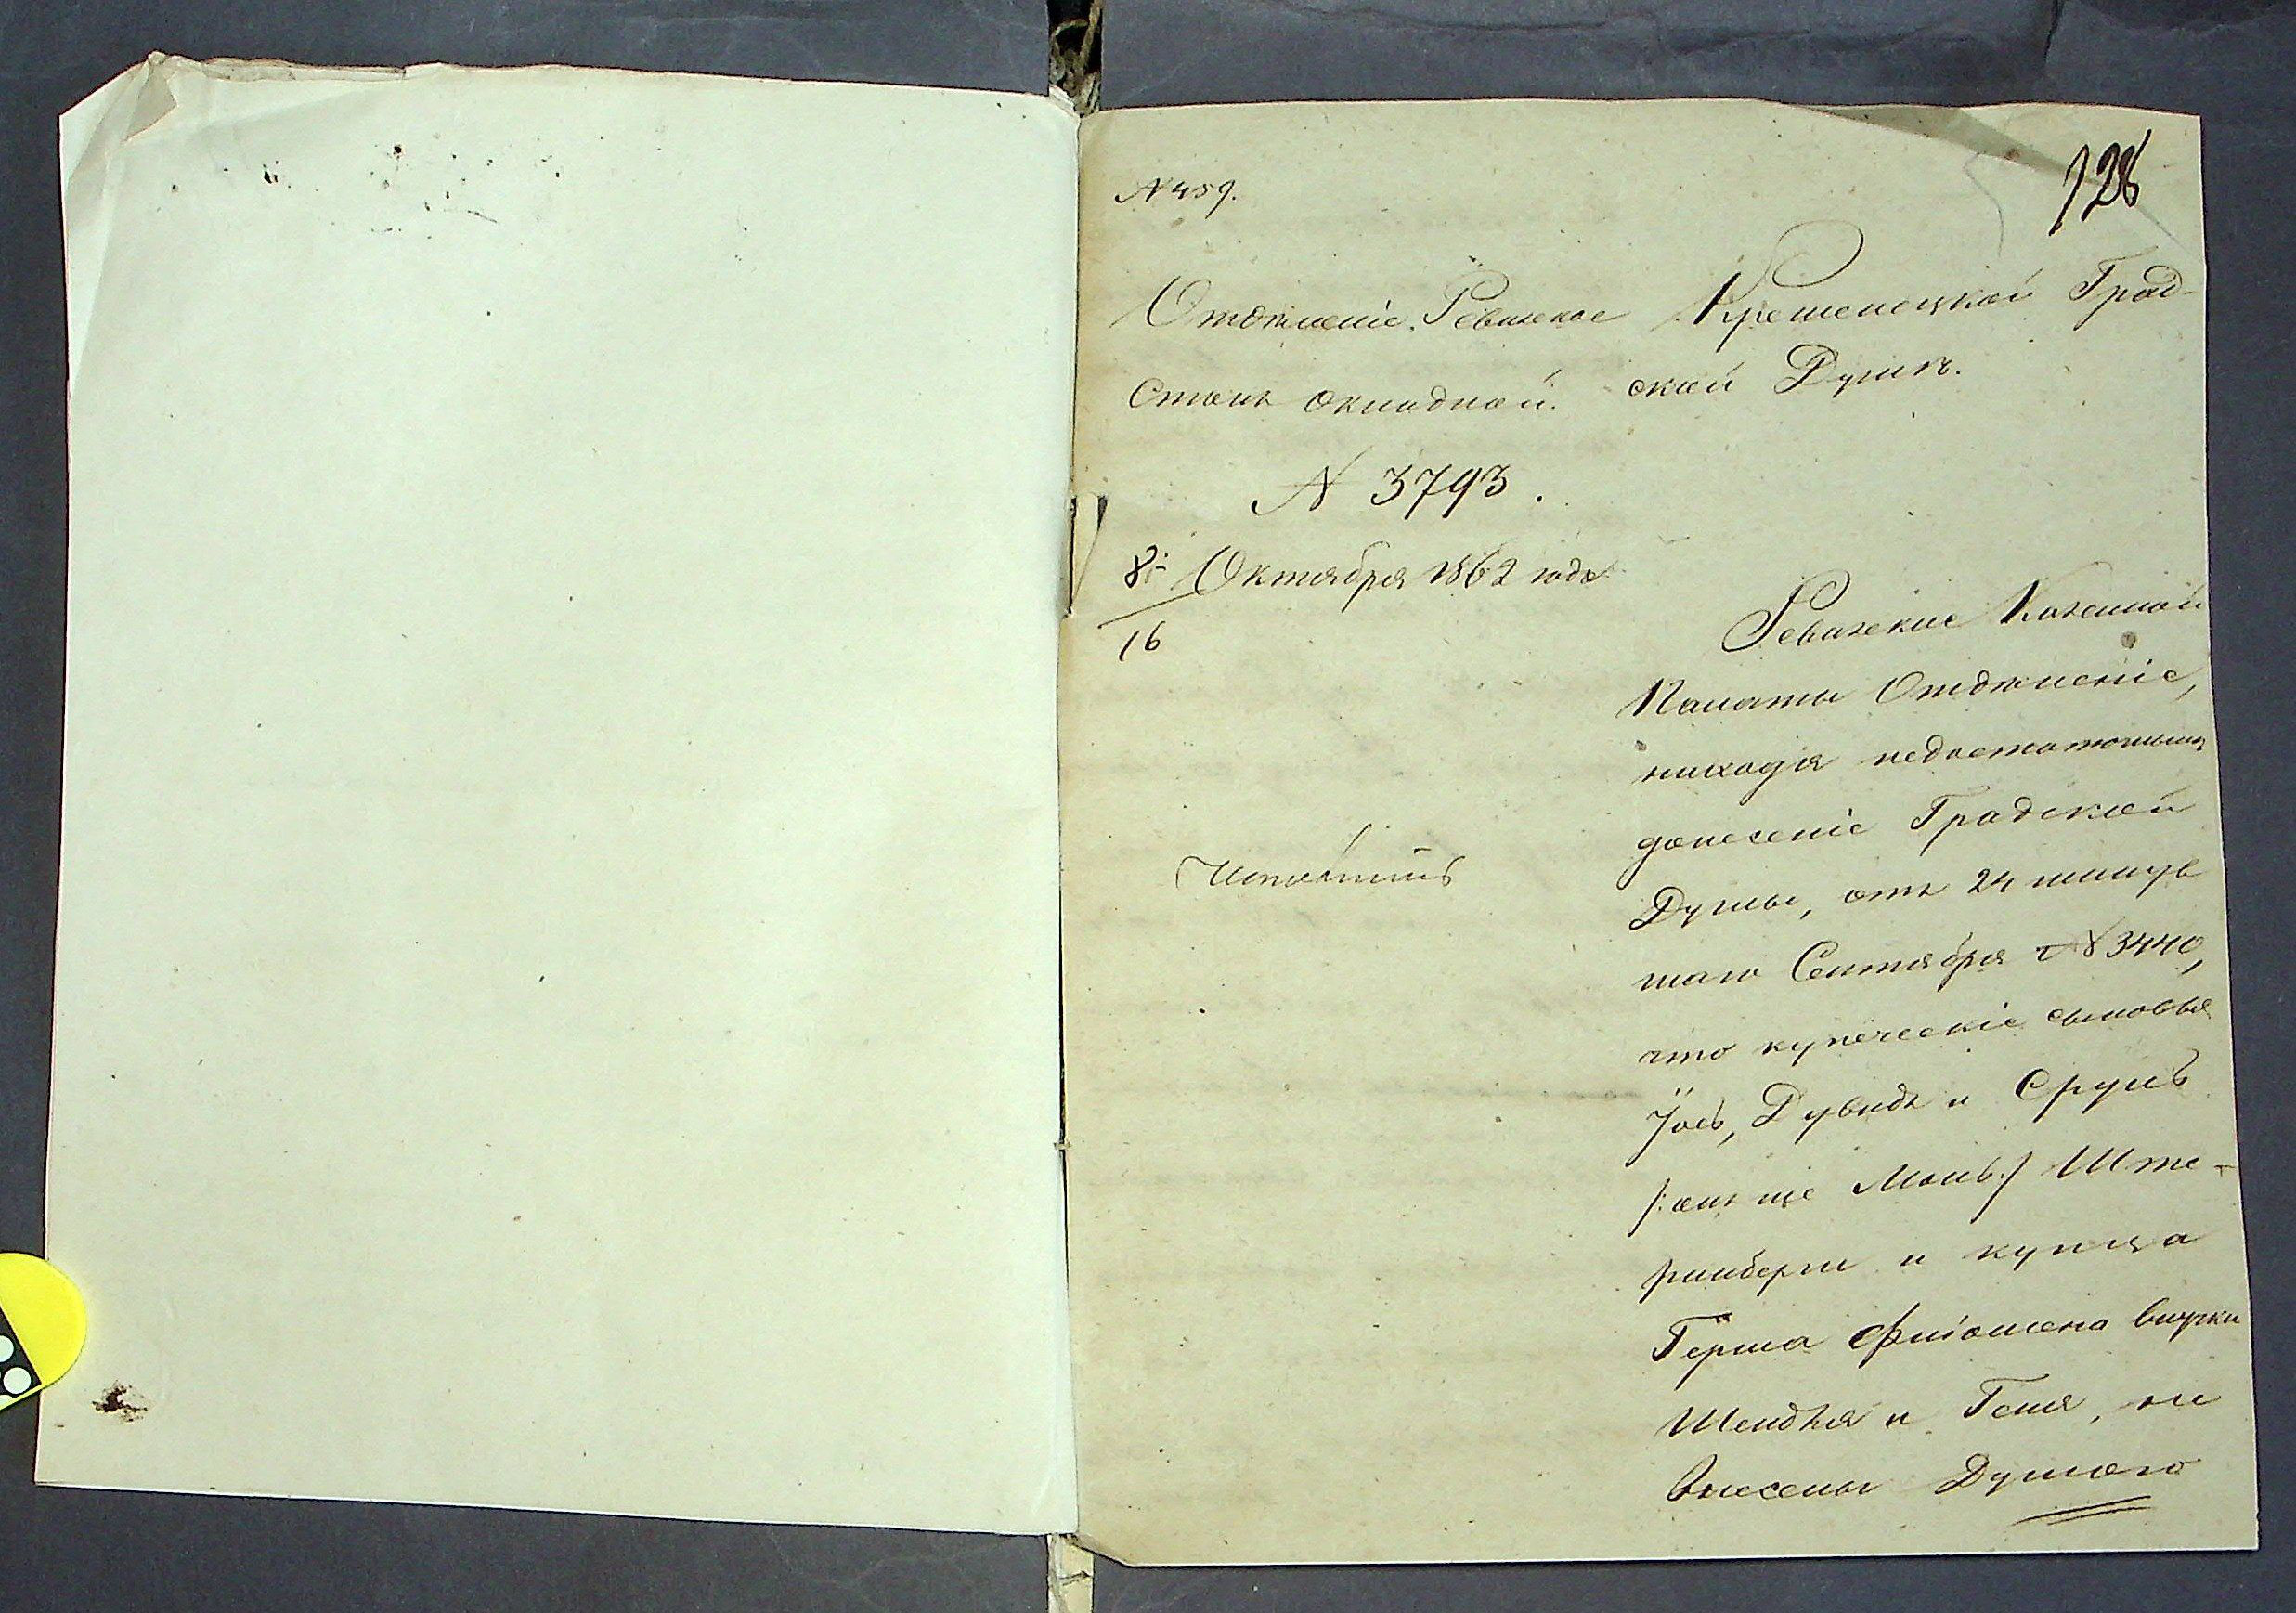 N 459.
128
Отдѣленіе Ревизское
Столъ окладной.
N 3793.
8 Октября 1862 года
16
Кременецкой Град-
ской Думѣ.
Ревизское Казенной
Палаты Отдѣленіе,
находя недостаточнымъ
донесеніе Градской
Думы, отъ 24 минув
шаго Сентября N 3440,
что купеческіе сыновья
Іось, Дувидъ и Сруль
/: онъ же /
и купца
Герша внуки
Шендля и Геня, не
внесены Думою